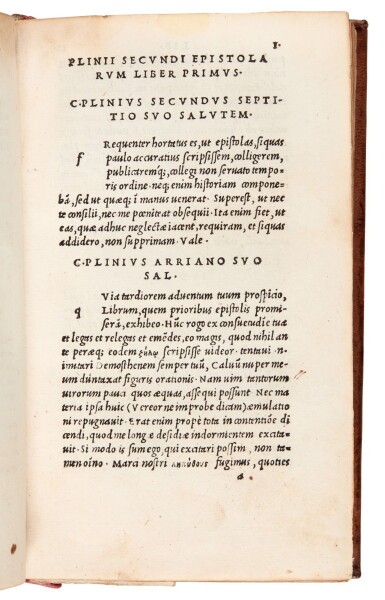 I.
PLINII SECVNDI EPISTOLA
RVM LIBER PRIMVS.
C.PLINIVS SECVNDVS SEPTI-
TIO SVO SALVTEM.
f Requenter hortatus es, ut epistolas, si quas
paulo accuratius scripsissem, colligerem,
publicaremq;, collegi non seruato tempo
ris ordine. neq; enim historiam compone-
bā, sed ut quæq; ī manus uenerat. Superest, ut nec
te consilii, nec me pœniteat obsequii. Ita enim fiet, ut
eas, quæ adhuc neglectæ iacent, requiram, et si quas
addidero, non supprimam. Vale.
C.PLINIVS ARRIANO SVO
SAL.
q Via tardiorem aduentum tuum prospicio,
Librum, quem prioribus epistolis promi-
serā, exhibeo. Hūc rogo ex consuetudie tua
et legas et relegas et emēdes, eo magis, quod nihil an
te peræq; eodem scripsisse uideor. tentaui
imitari Demosthenem semper tuū, Caluū nuper me-
um duntaxat figuris orationis. Nam uim tantorum
uirorum pauci quos æquus, assequi possunt. Nec ma
teria ipsa huic (Vereor ne improbe dicam) æmulatio
ni repugnauit. Erat enim prope tota in contentiōe di
cendi, quod me longæ desidiæ indormientem excita-
uit. Si modo is sum ego, qui excitari possim, non ta-
men oīno. Marci nostri ληκύθους fugimus, quoties
a